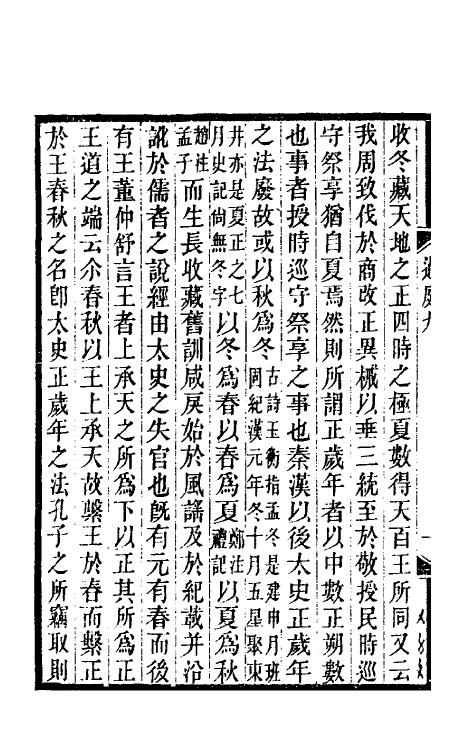 過庭
一
收冬藏天地之正四時之極夏數得天百王所同又云
我周致伐於商改正異械以垂三統至於敬授民時巡
守祭享猶自夏焉然則所謂正歲年者以中數正朔數
也事者授時巡守祭享之事也秦漢以後太史正歲年
之法廢故或以秋爲冬古詩玉衡指孟冬是建申月班固紀漢元年冬十月五星聚東
井亦是夏正之七月史記尚無冬字以冬爲春以春爲夏鄭注禮記以夏爲秋
趙注孟子而生長收藏舊訓咸戾始於風謠及於紀載并沿
訛於儒者之說經由太史之失官也旣有元有春而後
有王董仲舒言王者上承天之所爲下以正其所爲正
王道之端云尒春秋以王上承天故繫王於春而繫正
於王春秋之名卽太史正歲年之法孔子之所竊取則